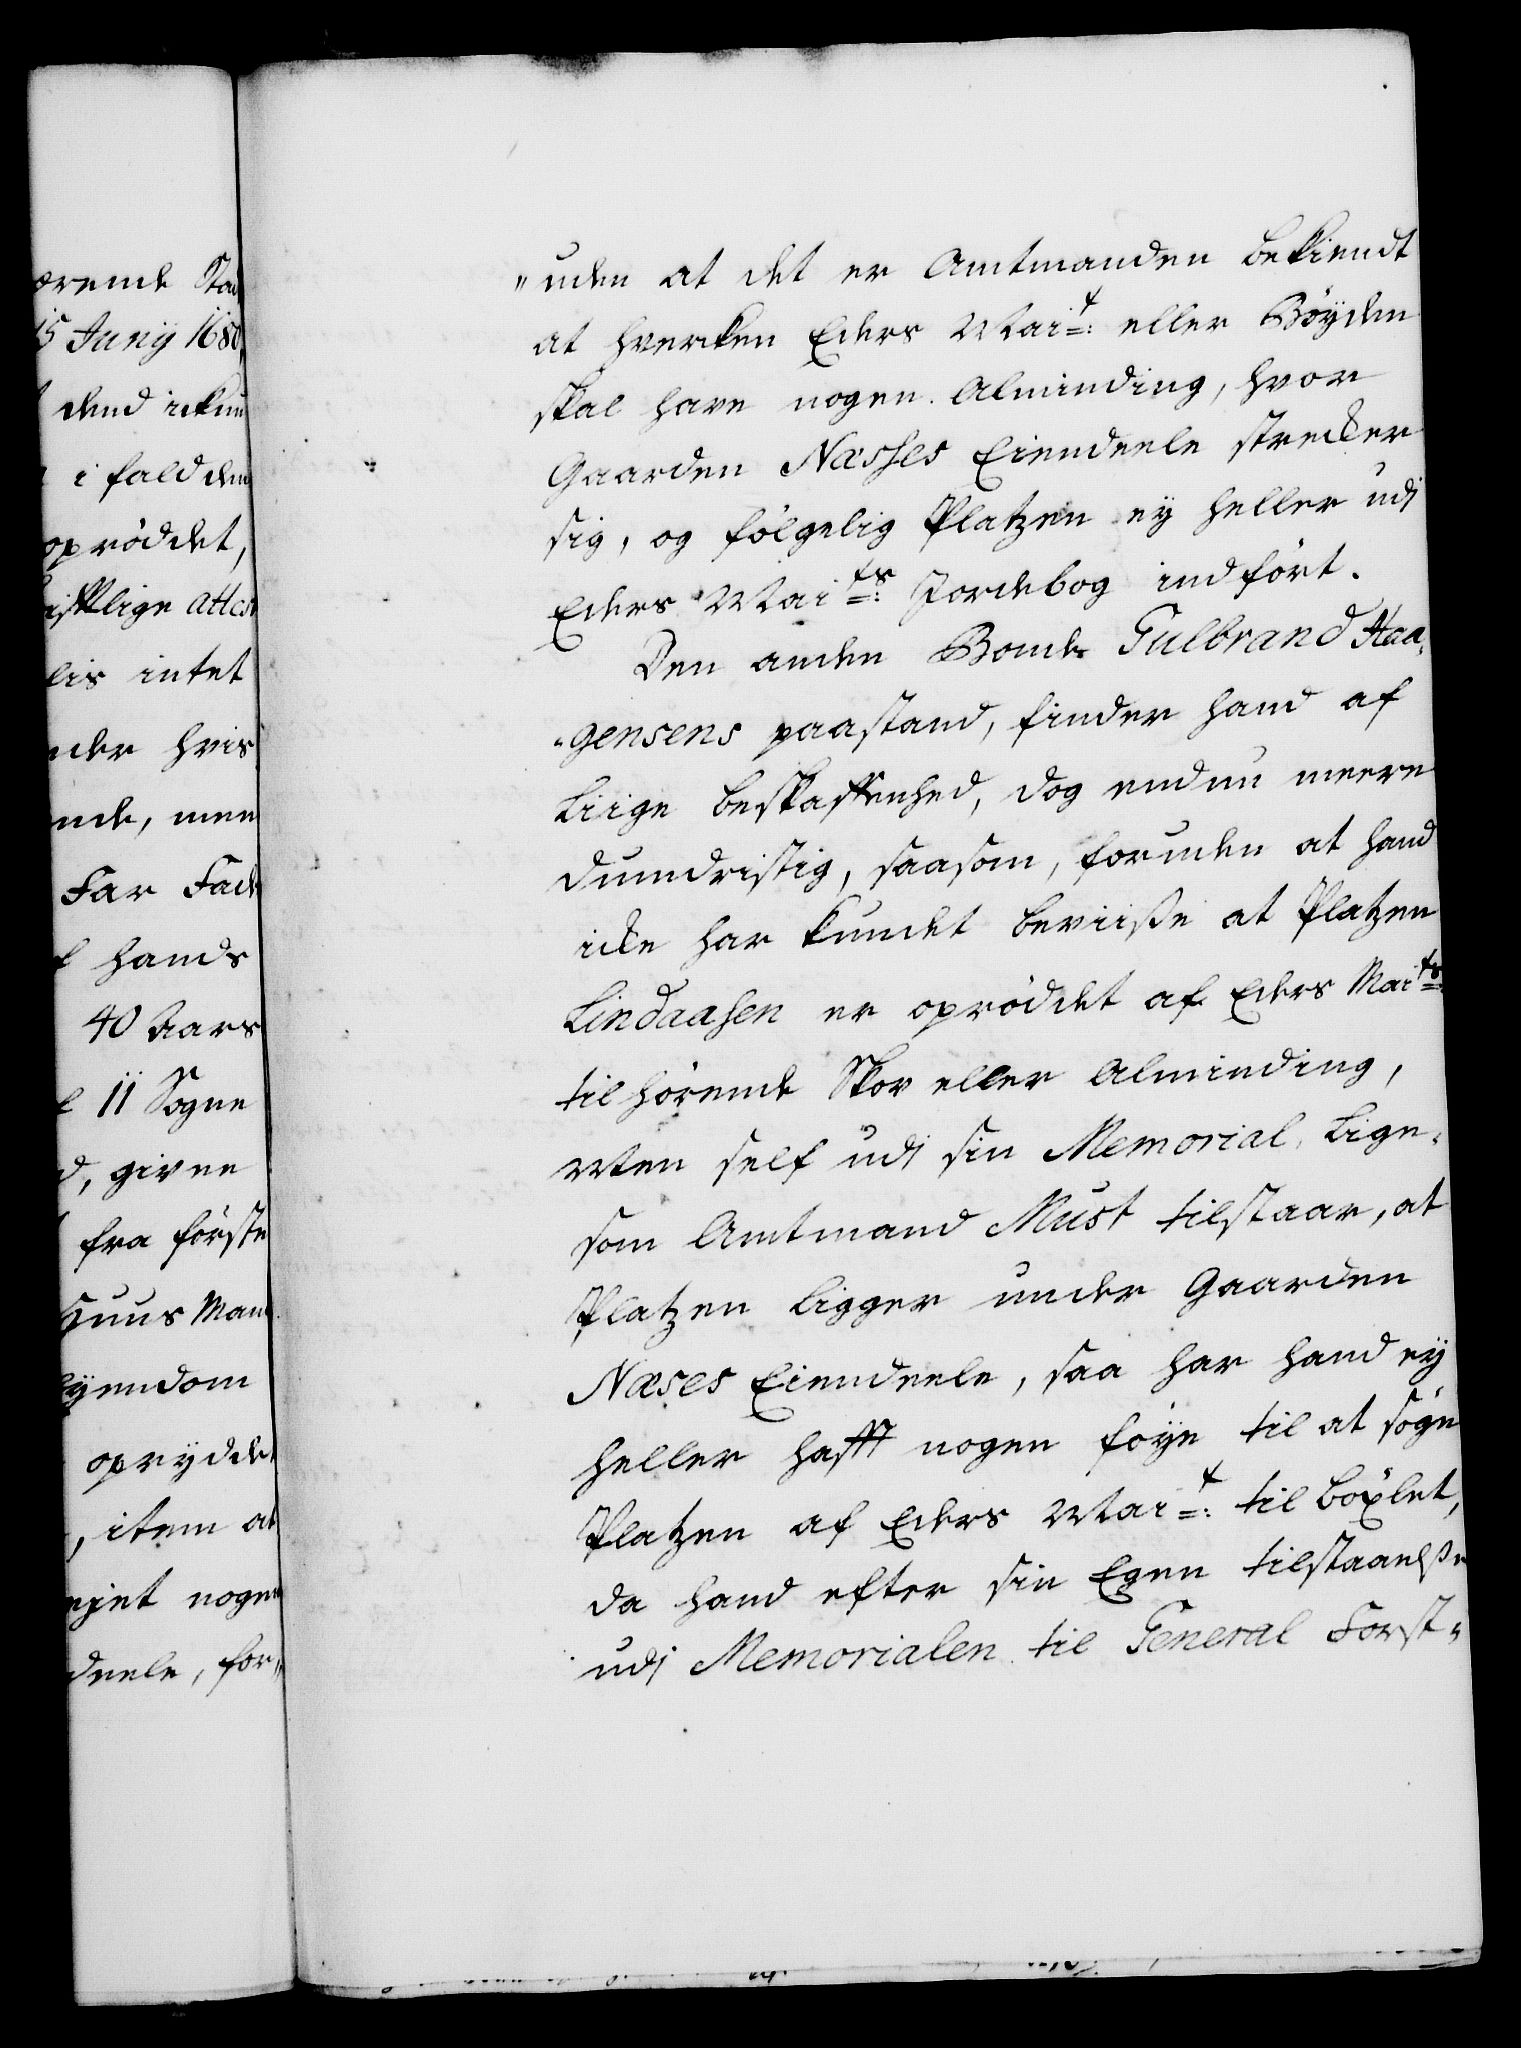 ærende Stad
15 Junÿ 1680,
dend ickun
i fald den
oprøddet,
lis intet
nder hvis
nde, men
Far Fade
hands
40 Aars
11 Sogne
d, givne
fra første
Huus Man
Eÿendom
oprÿddet
, item at
ejet nogen
deele, for„
„uden at det er Amtmanden bekiendt
at hvercken Eders Mai=t: eller Bøÿden
skal have nogen Alminding, hvor
Gaarden Næsses Eiendeele strecker
sig, og følgelig Platzen eÿ heller udi
Eders Mai=ts: Jordebog indført.
Den anden Bonde Gulbrand Haa„
„gensens paastand, finder hand af
Liige beskaffenhed, dog endnu meere
dumdristig, saasom, foruden at hand
icke har kundet beviiße at Platzen
Lindaasen er oprøddet af Eders Mai=ts:
tilhørende Skov eller Alminding,
Men self udi sin Memorial, Lige„
som Amtmand Must tilstaar, at
Platzen ligger under Gaarden
Næses Eiendeele, saa har hand eÿ
heller hafft nogen føÿe til at søge
Platzen af Eders Mai=t: til böxlet,
da hand efter sin Egen tilstaaelße
udi Memorialen til General Forst„